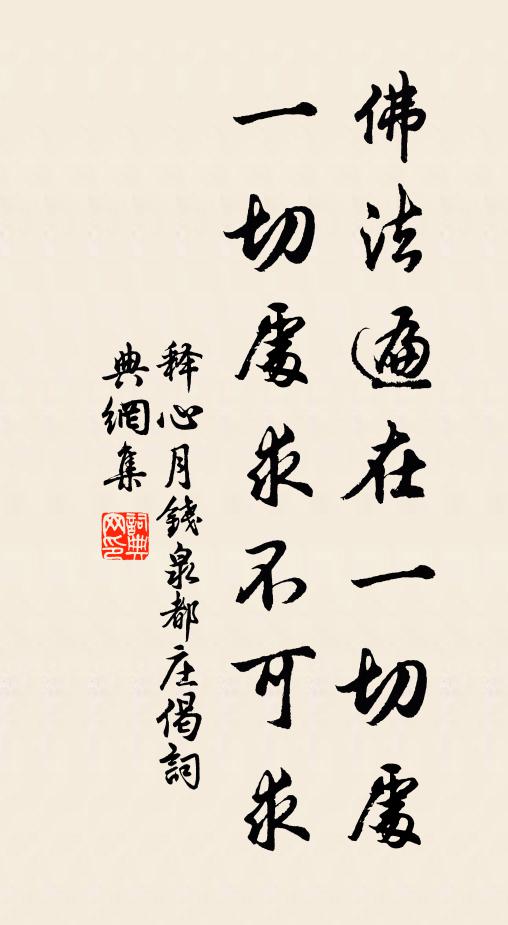 佛法遍在一切處
一切處求不可求
释心月錢泉都庄偈詞
典網集
詞典网印